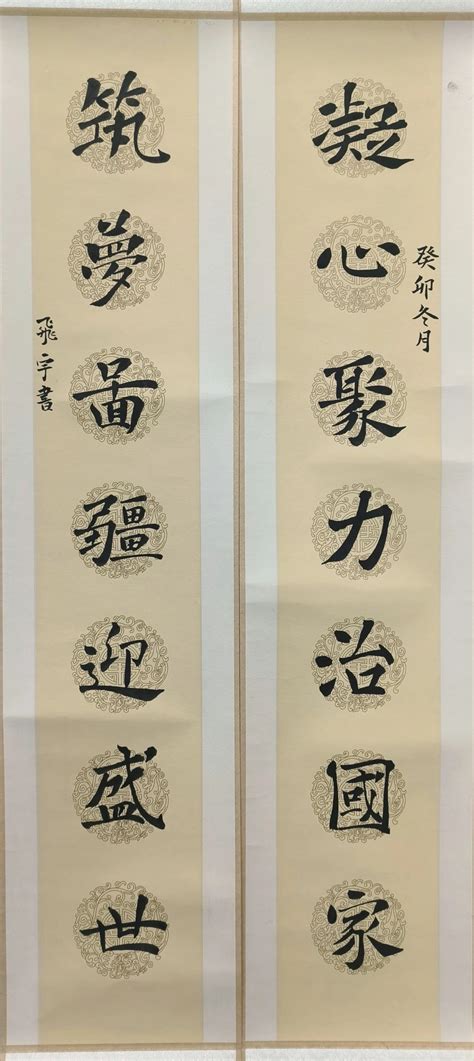 癸卯冬月
凝心聚力治國家
筑夢啚疆迎盛世
飛宇書